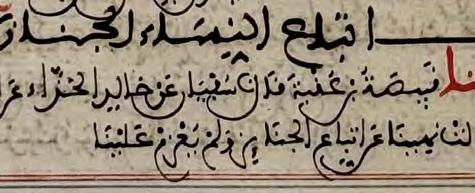 اتباع النساء الجناز
نا قبيصة بن عقبة قال سفيان عن خالد الحذاء عن
لت نهينا عن اتباع الجنايز ولم يعزم علينا